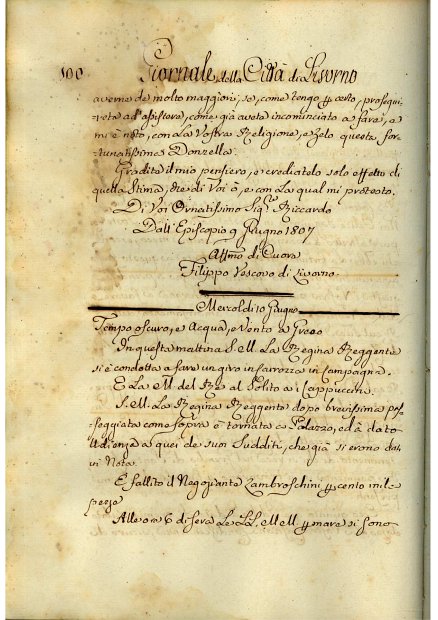 100 Giornale della Città di Livorno
averne de molto maggiori, se, come tengo p certo, prosegui-
rete ad assistere, come già avete incominciato a fare, e
mi è noto, con la vostra Religione, e zelo questa for-
tunatissima Donzella.
Gradite il mio pensiero, e credetelo solo effetto di
quella stima, che di Voi ò, e con la qual mi protesto.
Di Voi Ornatissimo Sigr Riccardo
Dall'Episcopio 9 Giugno 1807
Affmo di Cuore
Filippo Vescovo di Livorno
Mercoldì 10 Giugno
Tempo oscuro, e Acqua, e Vento a Greco
In questa mattina S. M. La Regina Reggente
si è condotta a fare un giro in Carrozza in Campagna.
E La M. del Re al Solito a i Cappuccini.
S. M. La Regina Reggente dopo brevissima pas-
seggiata come sopra è tornata a Palazzo, ed à dato
Udienza a quei de suoi Sudditi, che già si erono dati
in Nota.
È fallito il Negoziante Lambroschini p cento mile
pezze
Alle ore 6 di sera Le LL. MM. p mare si sono